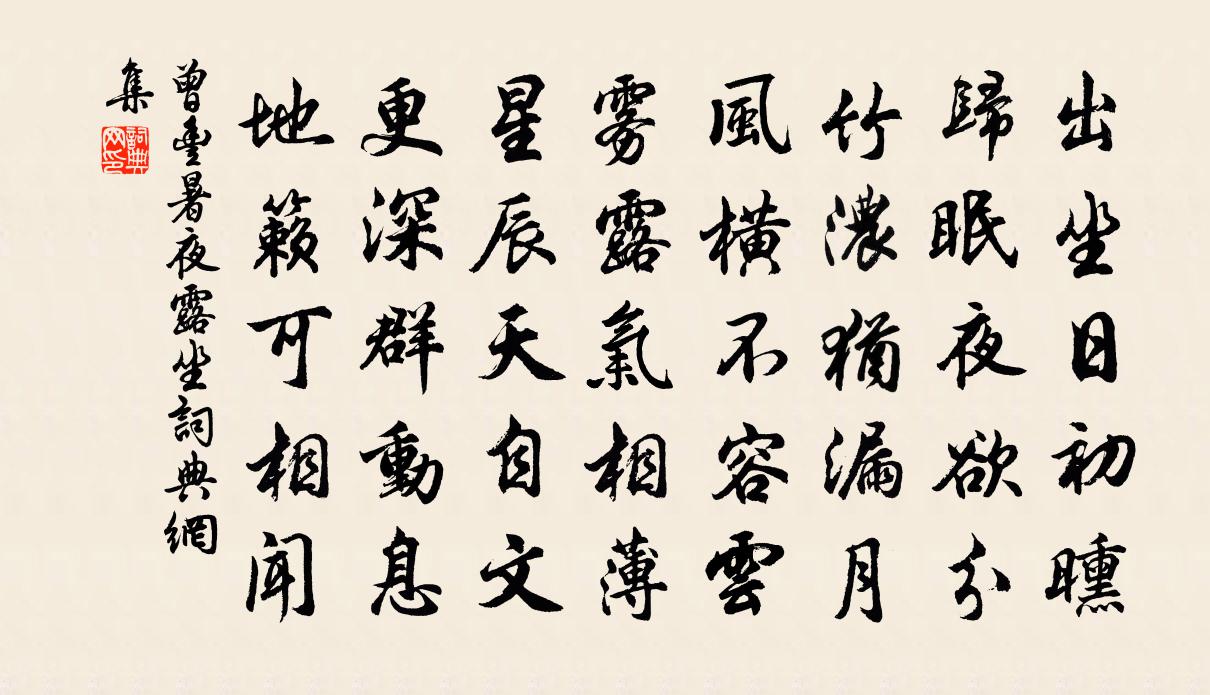 出坐日初曛
歸眠夜欲分
竹濃猶漏月
風橫不容雲
雾露氣相薄
星辰天自文
更深群動息
地籟可相聞
曾豊暑夜露坐詞典網
集
詞典
网印